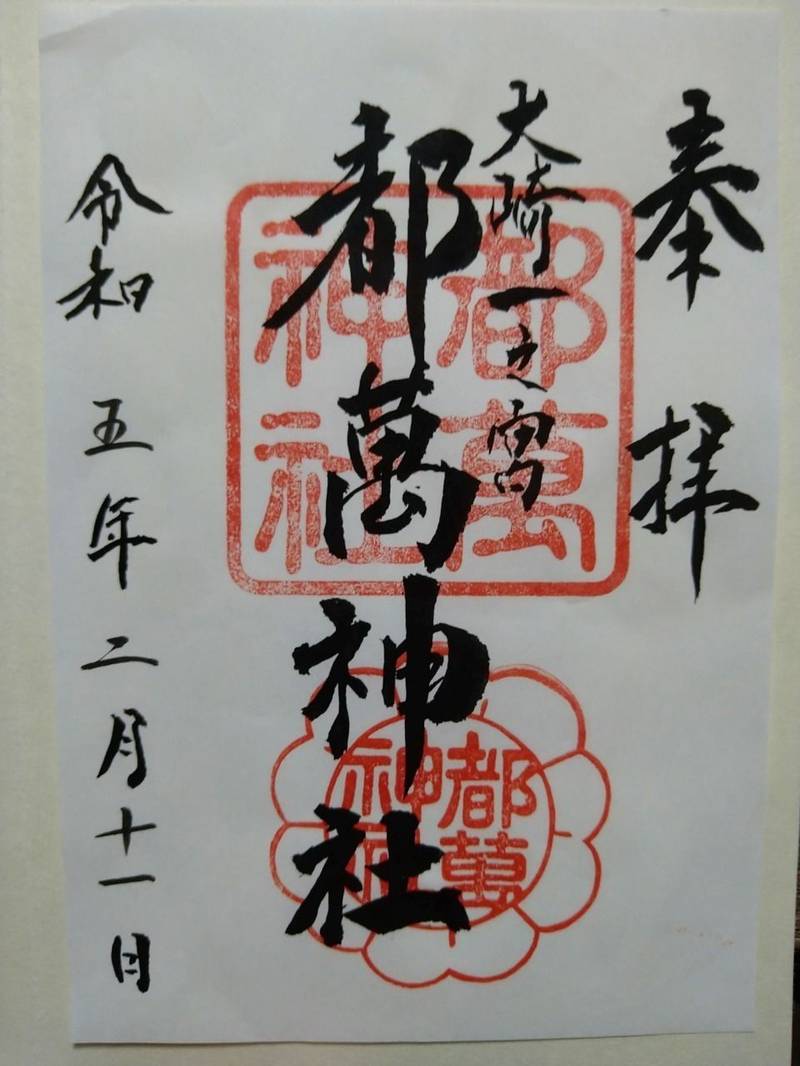 奉拝
大崎一之宮
都萬神社
令和五年二月十一日
都萬神社
都萬神社